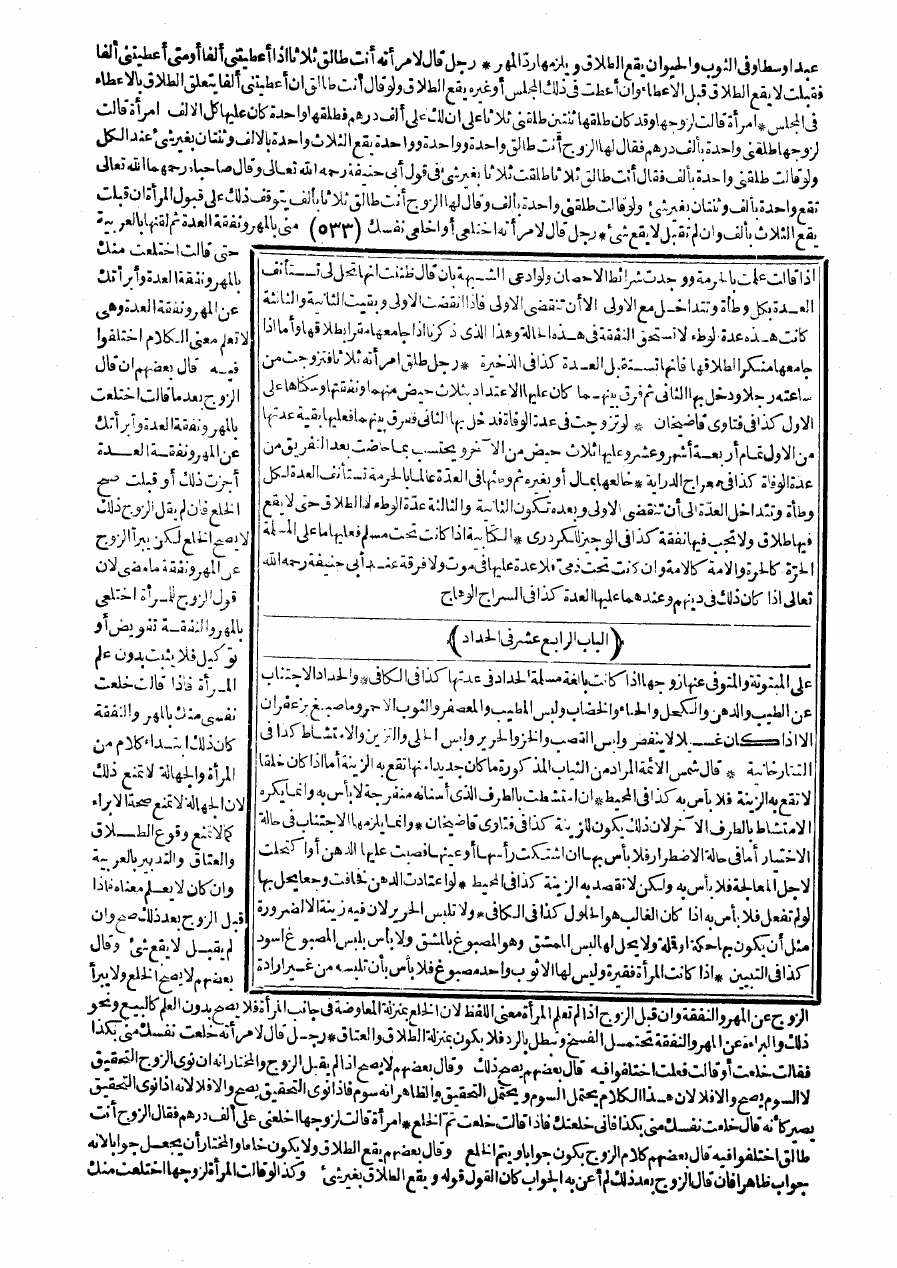 عبد أو سطا وفى الثوب والحيوان يقع الطلاق ويلزمها رد المهر * رجل قال لامرأته أنت طالق ثلاثا اذا أعطيتنى ألفا أو متى أعطيتنى ألفا
فقبلت لا يقع الطلاق قبل الاعطاء وان أعطت فى ذلك المجلس أو غيره يقع الطلاق ولو قال أنت طالق ان أعطيتنى ألفا يتعلق الطلاق بالاعطاء
فى المجلس * امرأة قالت لزوجها وقد كان طلقها ثنتين طلقنى ثلاثا على ان لك على ألف درهم فطلقها واحدة كان عليها كل الالف امرأة قالت
لزوجها طلقنى واحدة بألف درهم فقال لها الزوج أنت طالق واحدة وواحدة وواحدة يقع الثلاث واحدة بالالف وثنتان بغير شئ عند الكل
ولو قالت طلقنى واحدة بألف فقال أنت طالق ثلاثا طلقت ثلاثا بغير شئ فى قول أبى حنيفة رحمه الله تعالى وقال صاحباه رحمهما الله تعالى
تقع واحدة بألف وثنتان بغير شئ ولو قالت طلقنى واحدة بألف وقال لها الزوج أنت طالق ثلاثا بألف يتوقف ذلك على قبول المرأة ان قبلت
يقع الثلاث بألف وان لم تقبل لا يقع شئ * رجل قال لامرأته اختلعى أو اخلعى نفسك (٥٣٣) منى بالمهر ونفقة العدة ثم لقنها بالعربية
حتى قالت اختلعت منك
بالمهر ونفقة العدة وأبرأتك
عن المهر ونفقة العدة وهى
لا تعلم معنى الكلام اختلفوا
فيه قال بعضهم ان قال
الزوج بعد ما قالت اختلعت
بالمهر ونفقة العدة وأبرأتك
عن المهر ونفقة العدة
أجزت ذلك أو قبلت صح
الخلع فان لم يقل الزوج ذلك
لا يصح الخلع لكن يبرأ الزوج
عن المهر ونفقة ما مضى لان
قول الزوج للمرأة اختلعى
بالمهر والنفقة تفويض أو
توكيل فلا يثبت بدون علم
المرأة فاذا قالت خلعت
نفسى منك بالمهر والنفقة
كان ذلك ابتداء كلام من
المرأة والجهالة لا تمنع ذلك
لان الجهالة لا تمنع صحة الابراء
كما لا تمنع وقوع الطلاق
والعتاق والتدبير بالعربية
وان كان لا يعلم معناه فاذا
قبل الزوج بعد ذلك صح وان
لم يقبل لا يقع شئ وقال
بعضهم لا يصح الخلع ولا يبرأ
اذا قالت علمت بالحرمة ووجدت شرائط الاحصان ولو ادعى الشبهة بان قال ظننت انها تحل لى تستأنف
العدة بكل وطأة وتتداخل مع الاولى الا أن تنقضى الاولى فاذا انقضت الاولى وبقيت الثانية والثالثة
كانت هذه عدة لوطء لا تستحق النفقة فى هذه الحالة وهذا الذى ذكرنا اذا جامعها مقرا بطلاقها وأما اذا
جامعها منكرا لطلاقها فانها تستقبل العدة كذا فى الذخيرة * رجل طلق امرأته ثلاثا فتزوجت من
ساعته رجلا ودخل بها الثانى ثم فرق بينهما كان عليها الاعتداد بثلاث حيض منهما ونفقتها وسكناها على
الاول كذا فى فتاوى قاضيخان * لو تزوجت فى عدة الوفاة فدخل بها الثانى ففرق بينهما فعليها بقية عدتها
من الاول تمام أربعة أشهر وعشر وعليها ثلاث حيض من الآخر ويحتسب بما حاضت بعد التفريق من
عدة الوفاة كذا فى معراج الدراية * خالعها بمال أو بغيره ثم وطئها فى العدة عالما بالحرمة تستأنف العدة لكل
وطأة وتتداخل العدة الى أن تنقضى الاولى وبعده تكون الثانية والثالثة عدة الوطء لا الطلاق حتى لا يقع
فيها طلاق ولا تجب فيها نفقة كذا فى الوجيز للكردرى * الكتابية اذا كانت تحت مسلم فعليها ما على المسلمة
الحرة كالحرة والامة كالامة وان كنت تحت ذمى فلا عدة عليها فى موت ولا فرقة عند أبى حنيفة رحمه الله
تعالى اذا كان ذلك فى دينهم وعندهما عليها العدة كذا فى السراج الوهاج
(الباب الرابع عشر فى الحداد)
على المبتوتة والمتوفى عنها زوجها اذا كانت بالغة مسلمة الحداد فى عدتها كذا فى الكافى * والحداد الاجتناب
عن الطيب والدهن والكحل والحناء والخضاب ولبس المطيب والمعصفر والثوب الاحمر وما صبغ بزعفران
الا اذا كان غسيلا لا ينفض ولبس القصب والخز والحرير ولبس الحلى والتزين والامتشاط كذا فى
التتارخانية * قال شمس الائمة المراد من الثياب المذكورة ما كان جديدا منها تقع به الزينة أما اذا كان خلقا
لا تقع به الزينة فلا بأس به كذا فى المحيط * ان امتشطت بالطرف الذى أسنانه منفرجة لا بأس به وانما يكره
الامتشاط بالطرف الآخر لان ذلك يكون للزينة كذا فى فتاوى قاضيخان * وانما يلزمها الاجتناب فى حالة
الاختيار أما فى حالة الاضطرار فلا بأس بها ان اشتكت رأسها أو عينها فصبت عليها الدهن أو اكتحلت
لاجل المعالجة فلا بأس به ولكن لا تقصد به الزينة كذا فى المحيط * لو اعتادت الدهن فخافت وجعا يحل بها
لو لم تفعل فلا بأس به اذا كان الغالب هو الحلول كذا فى الكافى * ولا تلبس الحرير لان فيه زينة الا لضرورة
مثل أن يكون بها حكة أو قلة ولا يحل لها لبس الممشق وهو المصبوغ بالمشق ولا بأس بلبس المصبوغ أسود
كذا فى التبيين * اذا كانت المرأة فقيرة وليس لها الا ثوب واحد مصبوغ فلا بأس بأن تلبسه من غير ارادة
الزوج عن المهر والنفقة وان قبل الزوج اذا لم تعلم المرأة معنى اللفظ لان الخلع بمنزلة المعاوضة فى جانب المرأة فلا يصح بدون العلم كالبيع ونحو
ذلك والبراءة عن المهر والنفقة تحتمل الفسخ وتبطل بالرد فلا يكون بمنزلة الطلاق والعتاق * رجل قال لامرأته خلعت نفسك منى بكذا
فقالت خلعت أو قالت فعلت اختلفوا فيه قال بعضهم يصح ذلك وقال بعضهم لا يصح اذا لم يقبل الزوج والمختار انه ان نوى الزوج التحقيق
لا السوم يصح والا فلا لان هذا الكلام يحتمل السوم ويحتمل التحقيق والظاهر انه سوم فاذا نوى التحقيق يصح والا فلا لانه اذا نوى التحقيق
يصير كأنه قال خلعت نفسك منى بكذا فانى خلعتك فاذا قالت خلعت تم الخلع * امرأة قالت لزوجها اخلعنى على ألف درهم فقال الزوج أنت
طالق اختلفوا فيه قال بعضهم كلام الزوج يكون جوابا ويتم الخلع وقال بعضهم يقع الطلاق ولا يكون خلعا والمختار أن يجعل جوابا لانه
جواب ظاهرا فان قال الزوج بعد ذلك لم أعن به الجواب كان القول قوله ويقع الطلاق بغير شئ وكذا لو قالت المرأة لزوجها اختلعت منك